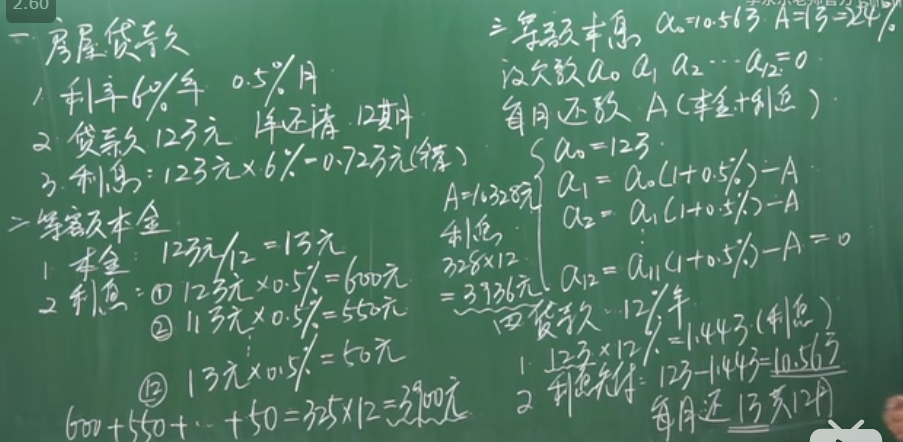 2.60
一 房屋贷款
1. 利率6%年 0.5%月
2 贷款12万元 1年还清 12期
3. 利息: 12万元×6%=0.72万元
二 等额本金
1 本金: 12万元/12=1万元
2 利息: ① 12万元×0.5%=600元
② 11万元×0.5%=550元
⋮
⑫ 1万元×0.5%=50元
600+550+…+50=325×12=3900元
三 等额本息 a₀=10.56万 A=1万=2.24%
设欠款 a₀ a₁ a₂ … a₁₂=0
每月还款 A(本金+利息)
a₀=12万
a₁=a₀(1+0.5%)-A
a₂=a₁(1+0.5%)-A
⋮
a₁₂=a₁₁(1+0.5%)-A=0
A=10328元
利息
328×12
=3936元
四 贷款 12%年
1. 12万×12%=1.44万(利息)
2 利息先付: 12万-1.44万=10.56万
每月还1万 共12月